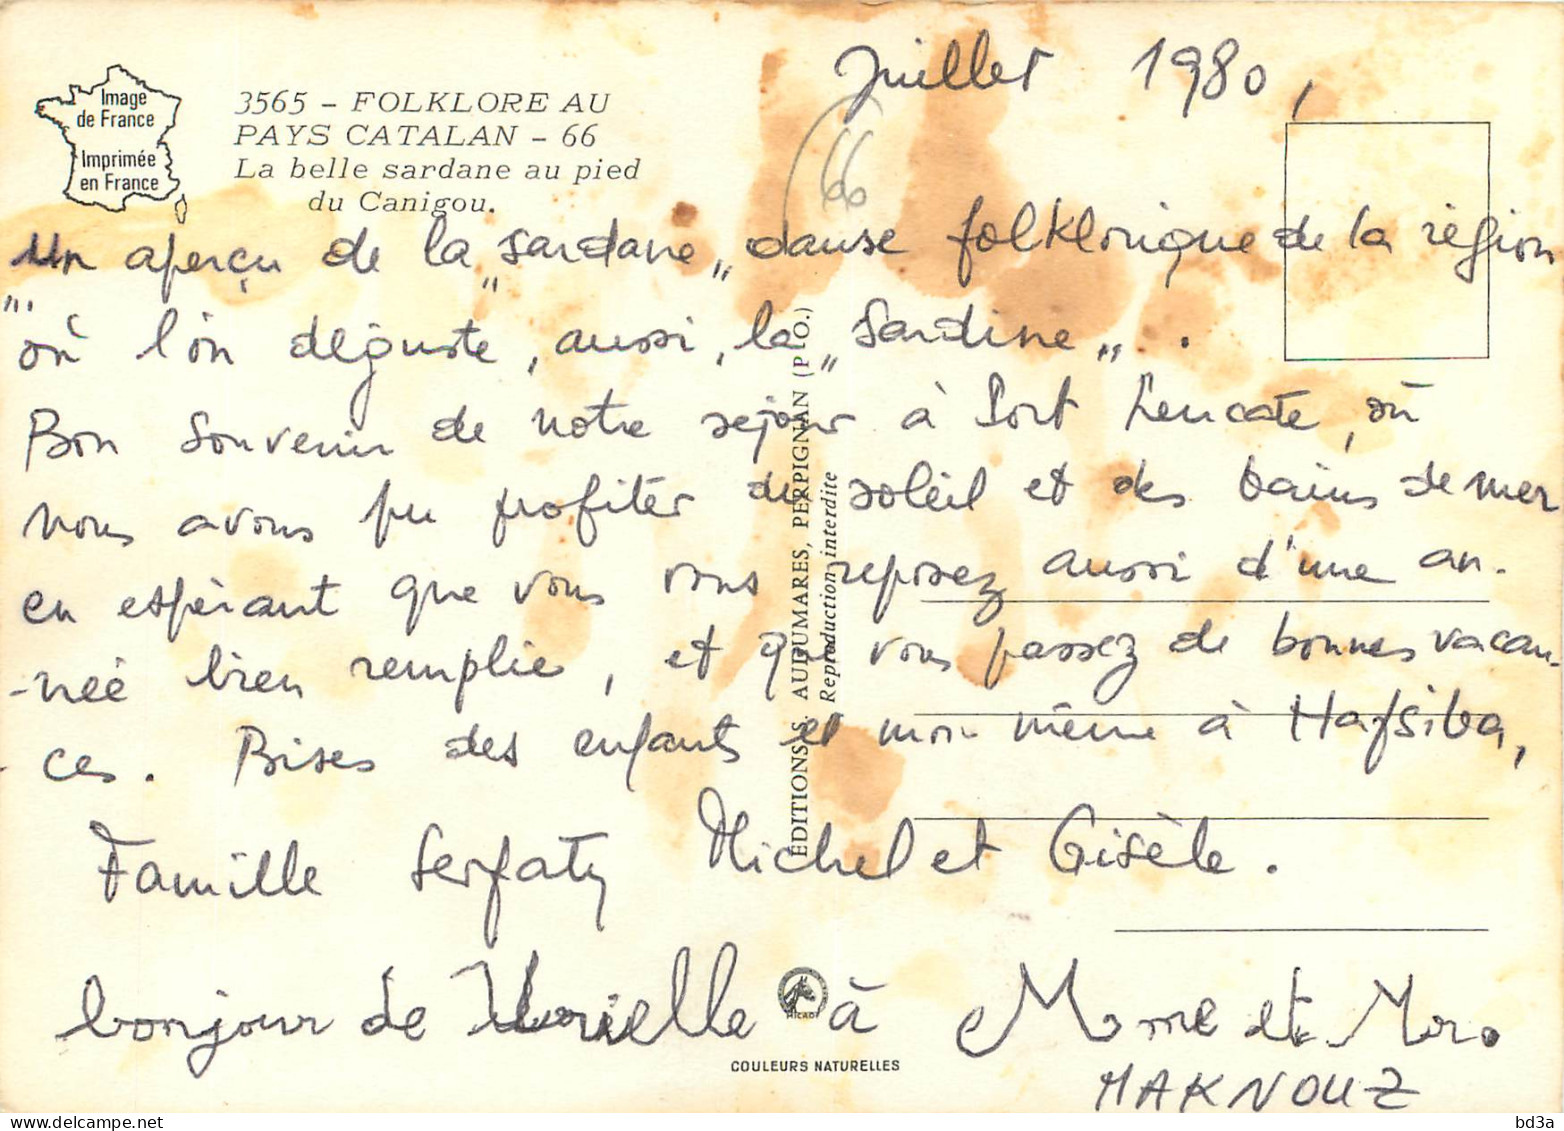 Image
de France
Imprimée
en France
3565 - FOLKLORE AU
PAYS CATALAN - 66
La belle sardane au pied
du Canigou.
Juillet 1980,
66
Un aperçu de la „sardane„ danse folklorique de la région
où l'on déguste, aussi, la „sardine„.
Bon souvenir de notre séjour à Port Leucate, où
nous avons pu profiter du soleil et des bains de mer
en espérant que vous vous reposez aussi d'une an-
-née bien remplie, et que vous passez de bonnes vacan-
-ces. Bises des enfants et moi même à Hafsiba,
Famille Serfaty Michel et Gisèle.
bonjour de à Mme et Mr.
MAKNOUZ
EDITIONS S. AUDUMARES, PERPIGNAN (P.-O.)
Reproduction interdite
COULEURS NATURELLES
bd3a